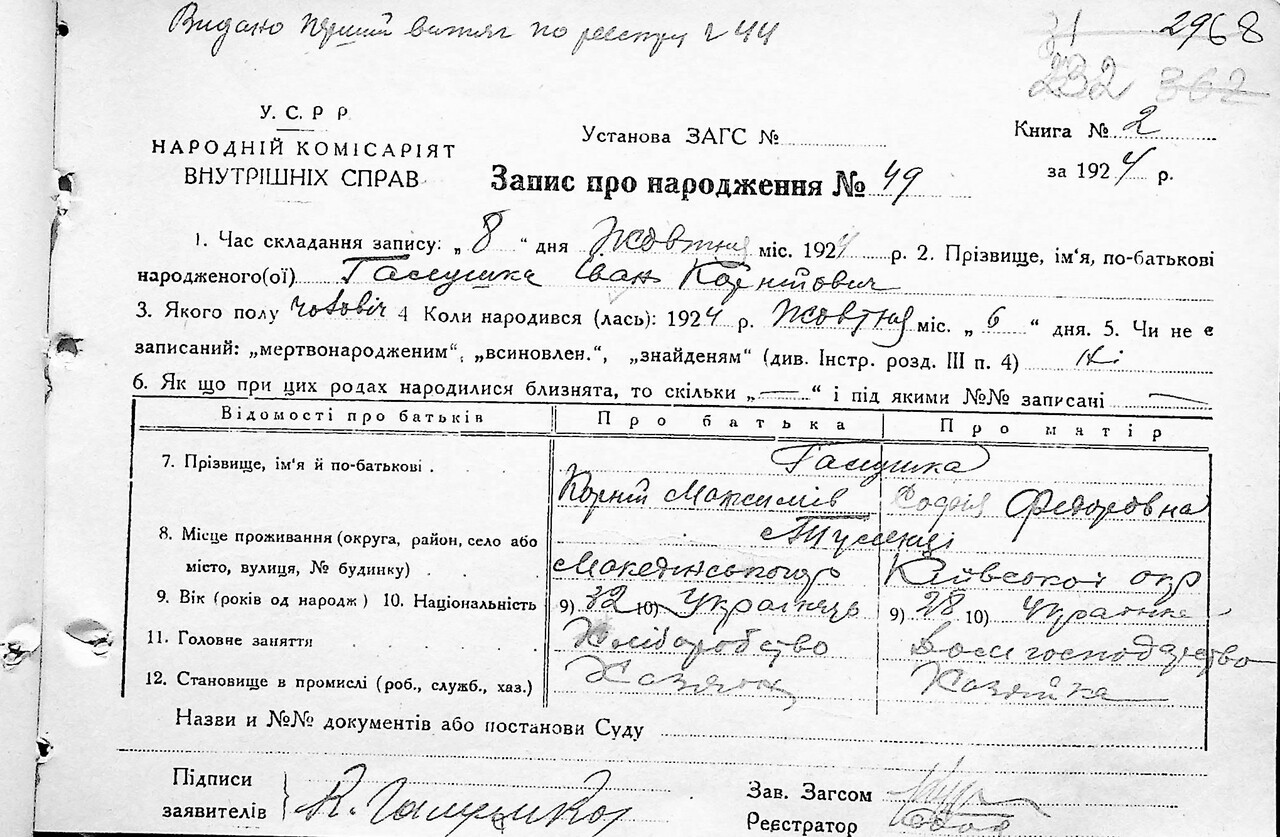 Видано перший витяг по реєстру № 44
31 2968
232 362
У.С.Р.Р.
НАРОДНІЙ КОМІСАРІЯТ
ВНУТРІШНІХ СПРАВ
Установа ЗАГС №
Книга № 2
за 1924 р.
Запис про народження № 49
1. Час складання запису: „8“ дня Жовтня міс. 1924 р. 2. Прізвище, ім'я, по-батькові
народженого(ої) Галушка Іван Корнійович
3. Якого полу чоловіч 4 Коли народився (лась): 1924 р. Жовтня міс. „6“ дня. 5. Чи не є
записаний: „мертвонародженим“, „всиновлен.“, „знайденям“ (див. Інстр. розд. III п. 4) Ні
6. Як що при цих родах народилися близнята, то скільки „—“ і під якими №№ записані —
Відомості про батьків Про батька Про матір
7. Прізвище, ім'я й по-батькові . Галушка
Корній Максимів Софія Федоровна
8. Місце проживання (округа, район, село або
місто, вулиця, № будинку) . . Київської окр
9. Вік (років од народж) 10. Національність 9) 32 10) Українець 9) 28 10) Українка
11. Головне заняття Хліборобство господарство
12. Становище в промислі (роб., служб., хаз.) Хазяїн Хазяйка
Назви и №№ документів або постанови Суду
Підписи
заявителів К. Галушка
Зав. Загсом
Реєстратор